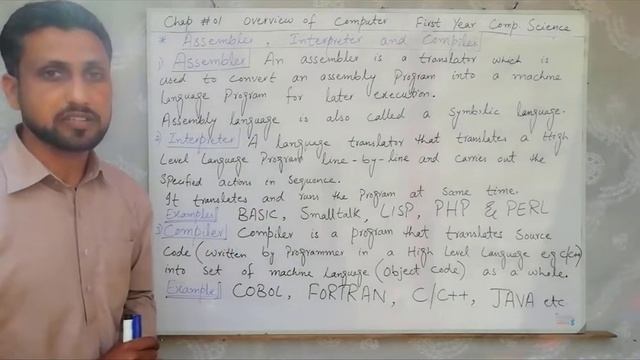 Chap #01 Overview of Computer First Year Comp Science
* Assembler, Interpreter and Compiler
1) Assembler An assembler is a translator which is
used to convert an assembly Program into a machine
Language Program for later execution.
Assembly language is also called a Symbolic language.
2) Interpreter A language translator that translates a High
Level Language Program line-by-line and carries out the
specified actions in sequence.
It translates and runs the Program at same time.
Examples BASIC, Smalltalk, LISP, PHP & PERL
3) Compiler Compiler is a program that translates Source
Code (written by Programmer in a High Level Language e.g c/c++)
into Set of machine Language (Object Code) as a whole.
Example COBOL, FORTRAN, C/C++, JAVA etc